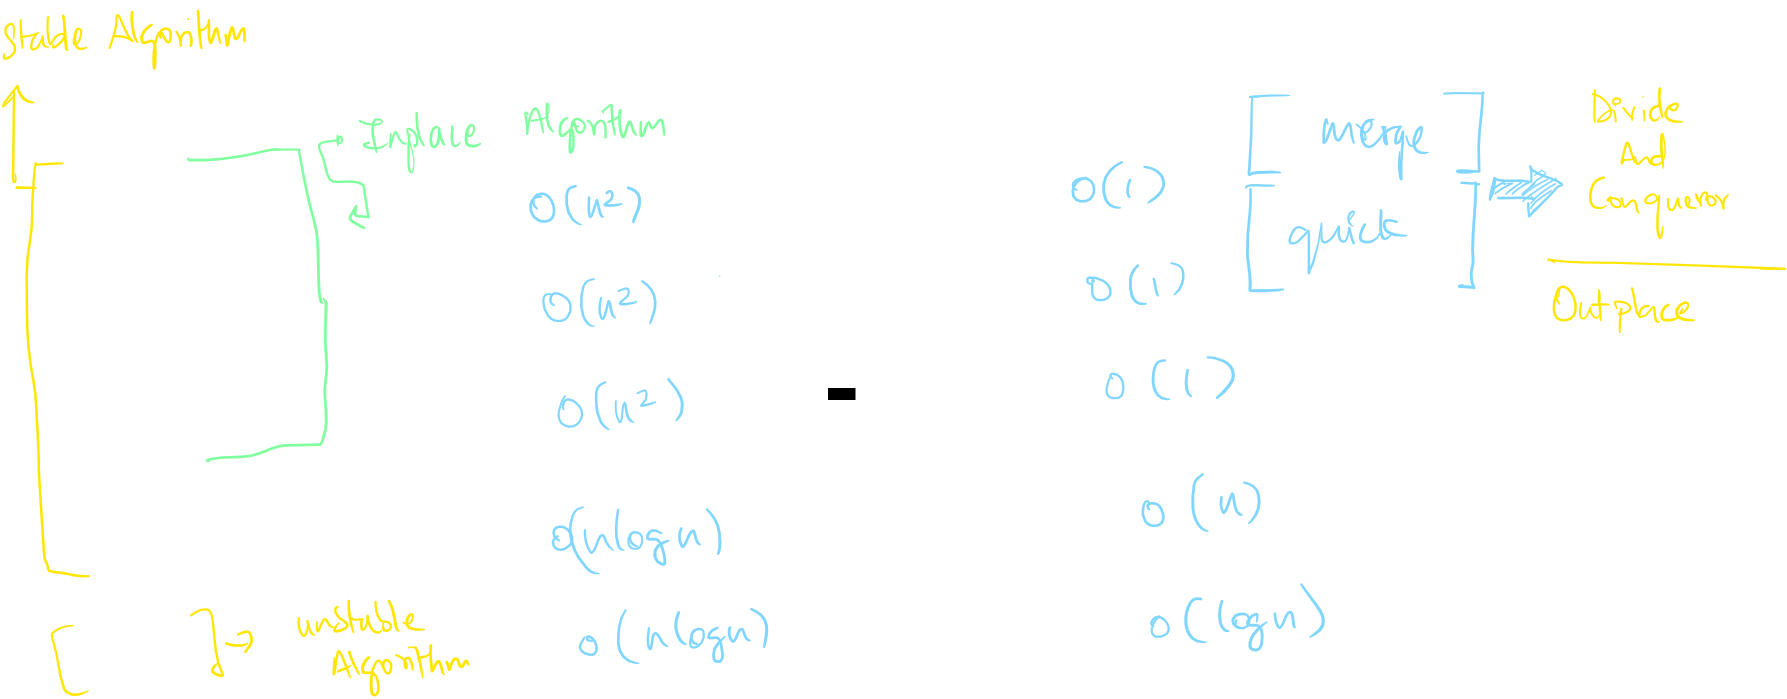 Stable Algorithm
Inplace Algorithm
O(n²)
O(n²)
O(n²)
O(nlogn)
O(nlogn)
unstable
Algorithm
O(1)
O(1)
O(1)
O(n)
O(logn)
merge
quick
Divide
And
Conqueror
Outplace